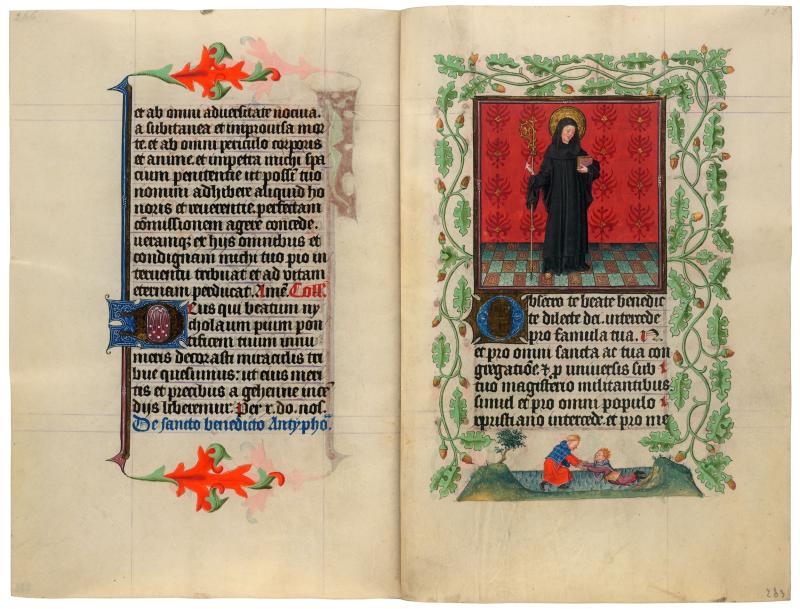 266
et ab omni aduersitate nociua.
a subitanea et improuisa mor
te. et ab omni periculo corporis
et anime. et impetra michi spa
cium penitentie ut possem tuo
nomini adhibere aliquid ho
noris et reuerentie. perfectam
cōmissionem agere concede.
ueramq; et hijs omnibus et
condignam michi tuo pio in
teruentu tribuat et ad vitam
eternam perducat. Amē. Coll̄.
Deus qui beatum ny
cholaum pium pon
tificem tuum innu
meris decorasti miraculis tri
bue quesumus: ut eius meri
tis et precibus a gehenne ince
dijs liberemur. Per x. do. nos.
De sancto benedicto Antyphō.
Obsecro te beate benedic
te dilecte dei. intercede
pro famula tua. N.
et pro omni sancta ac tua con
gregatiōe. et p uniuersis sub
tuo magisterio militantibus
simul et pro omni populo
xpristiano intercede. et pro me
283